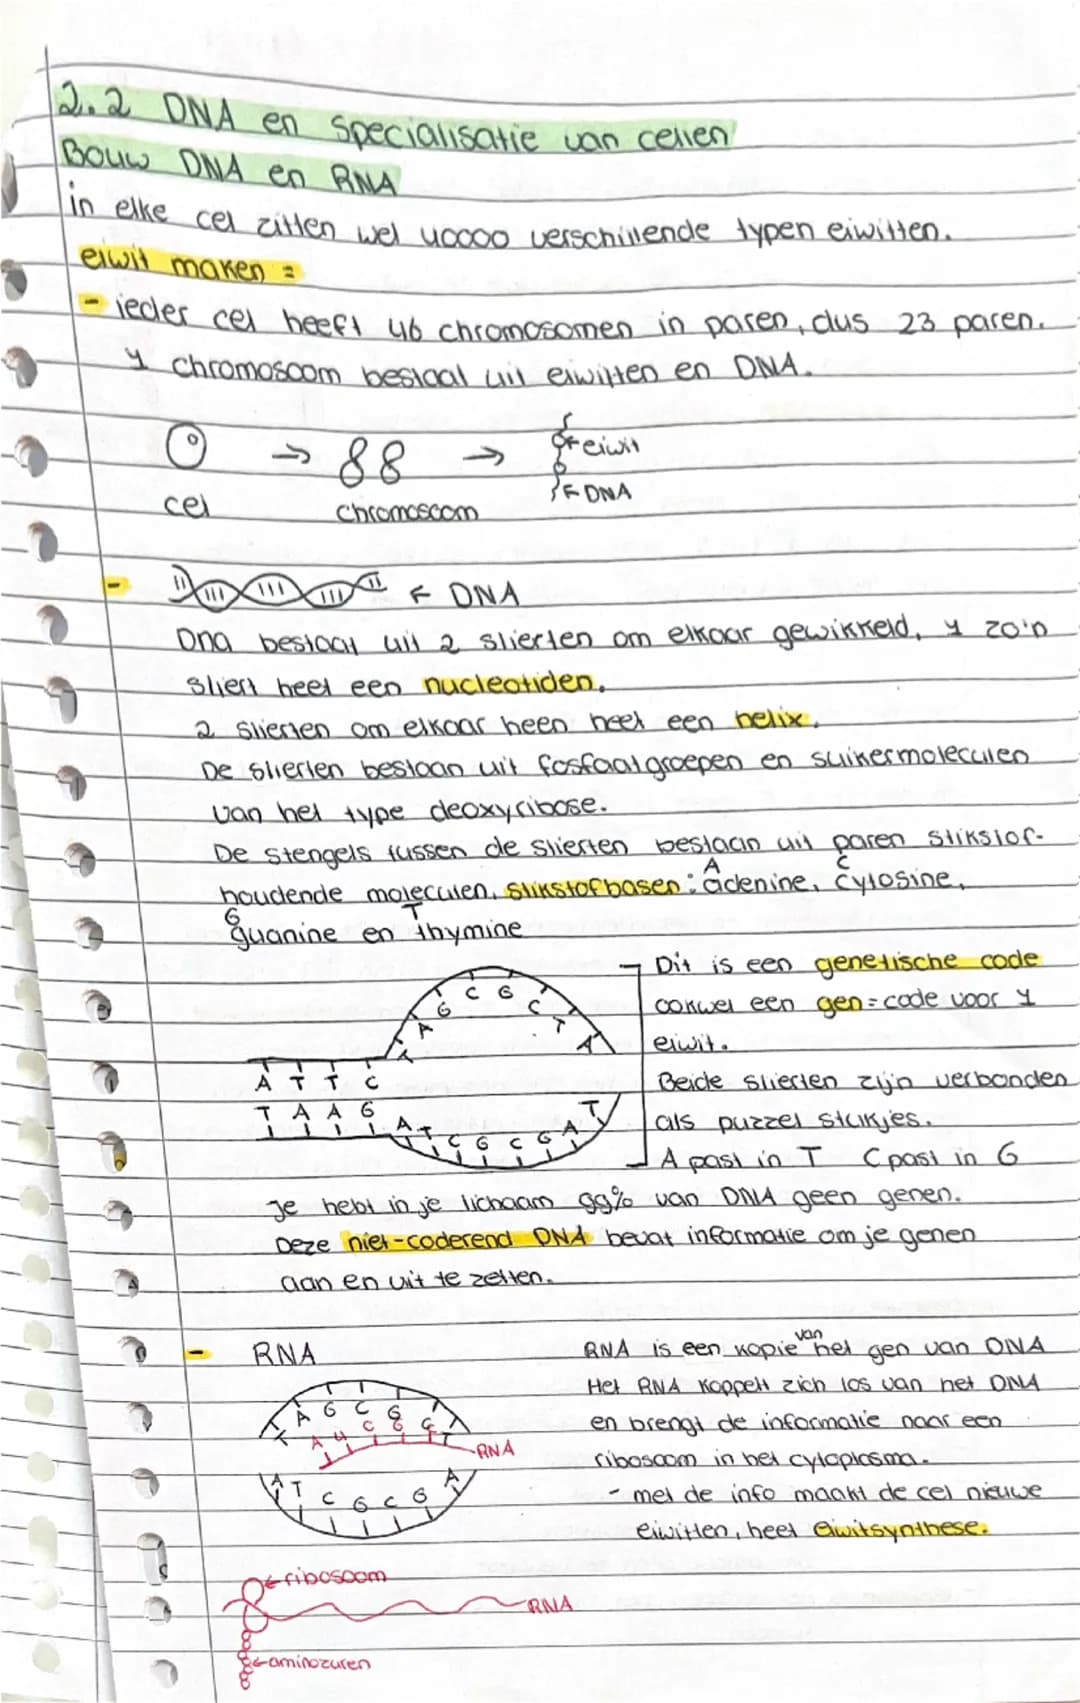 2.2 DNA en specialisatie van cellen
Bouw DNA en RNA
in elke cel zitten wel 40000 verschillende typen eiwitten.
eiwit maken =
- ieder cel heeft 46 chromosomen in paren, dus 23 paren.
1 chromosoom bestaat uit eiwitten en DNA.
eiwit
DNA
cel
chromosoom
- DNA
Dna bestaat uit 2 slierten om elkaar gewikkeld, 1 zo'n
sliert heet een nucleotiden.
2 slierten om elkaar heen heet een helix.
De slierten bestaan uit fosfaatgroepen en suikermoleculen
van het type deoxyribose.
De stengels tussen de slierten bestaan uit paren stikstof-
A C
houdende moleculen, stikstofbasen: adenine, cytosine,
G T
guanine en thymine
Dit is een genetische code
ookwel een gen = code voor 1
eiwit.
Beide slierten zijn verbonden
als puzzel stukjes.
A past in T C past in G
A T T C T A G C G C T A
T A A G A T C G C G A T
Je hebt in je lichaam 99% van DNA geen genen.
Deze niet-coderend DNA bevat informatie om je genen
aan en uit te zetten.
- RNA
RNA is een kopie van het gen van DNA
Het RNA koppelt zich los van het DNA
en brengt de informatie naar een
ribosoom in het cytoplasma.
- met de info maakt de cel nieuwe
eiwitten, heet eiwitsynthese.
T A G C G
A U C G C
RNA
A T C G C G A
ribosoom
RNA
aminozuren